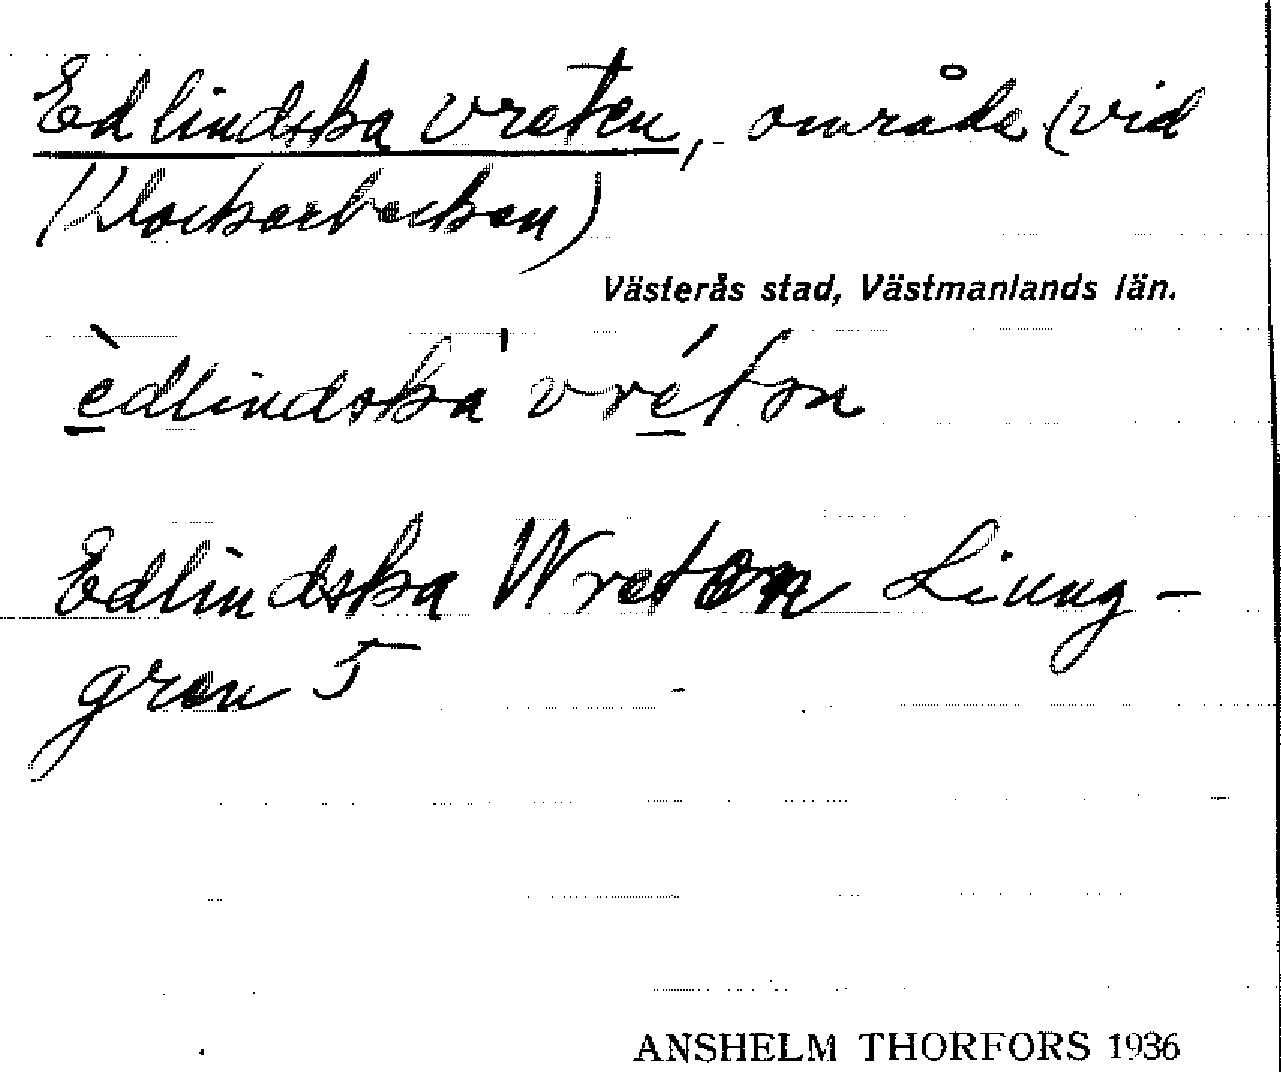 Edlindska vreten, område (vid
(Klockarbacken)
Västerås stad, Västmanlands län.
èdlindska vréton
Edlindska Wreton Ljung-
gren 5
ANSHELM THORFORS 1936